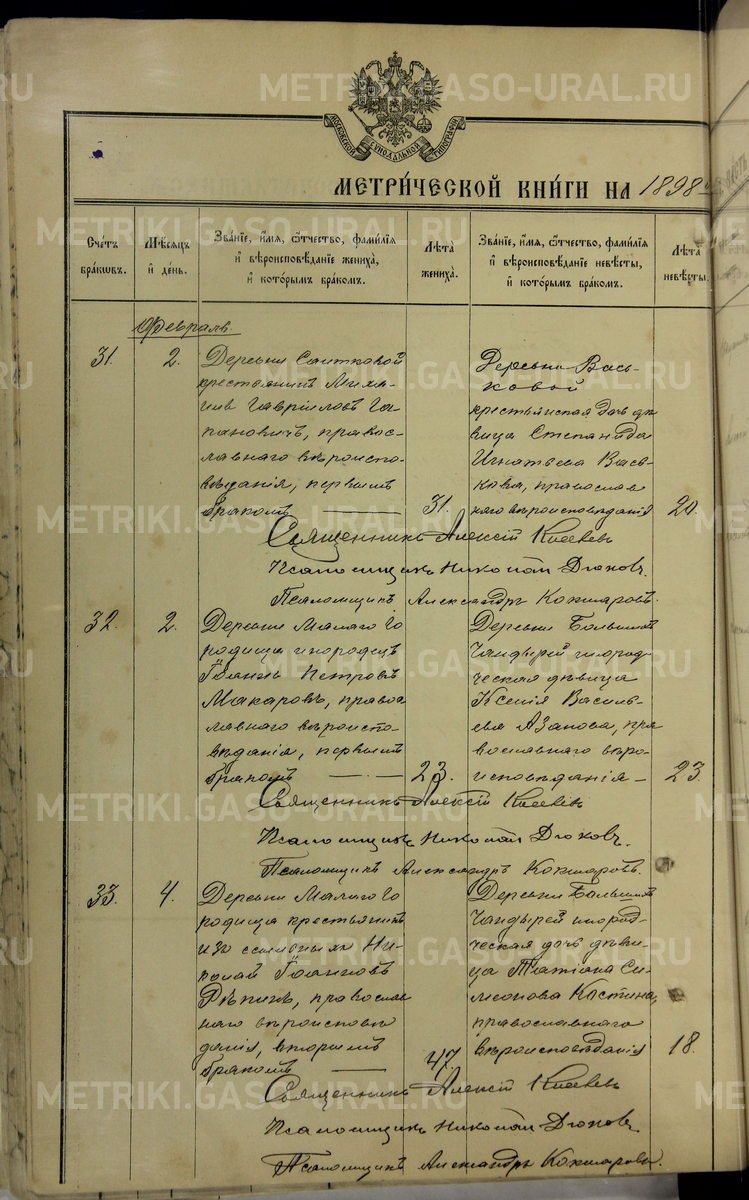 МОСКОВСКОЙ СѴНОДАЛЬНОЙ ТИПОГРАФІИ
МЕТРИ́ЧЕСКОЙ КНИ́ГИ НА 1898
Сче́тъ бра́кѡвъ.
Мѣ́сяцъ и҆ де́нь.
Зва́нїе, и҆́мѧ, ѻ҆́тчество, фами́лїѧ и҆ вѣроисповѣ́данїе жениха̀, и҆ кото́рымъ бра́комъ.
Лѣ́та жениха̀.
Зва́нїе, и҆́мѧ, ѻ҆́тчество, фами́лїѧ и҆ вѣроисповѣ́данїе невѣ́сты, и҆ кото́рымъ бра́комъ.
Лѣ́та невѣ́сты.
Февраль
31.
2.
Деревни
крестьянинъ Миха-
илъ Гавриловъ Га-
пановичъ, правос-
лавнаго вѣроиспо-
вѣданія, первымъ
бракомъ
31.
Деревни Вась-
ковой
крестьянская дочь дѣ-
вица Степанида
Игнатьева Вась-
кова, православ
наго вѣроисповѣданія
20.
Священникъ Алексій Киевевъ
Псаломщикъ Николай Дюковъ.
Псаломщикъ Александръ Кокшаровъ.
32.
2.
Деревни Малаго Го
родища инородецъ
Іоаннъ Петровъ
Макаровъ, правос
лавнаго вѣроиспо-
вѣданія, первымъ
бракомъ
23.
Деревни Большой
Чандырей инород-
ческая дѣвица
Ксенія Василь-
ева Азанова, пра
вославнаго вѣро-
исповѣданія
23
Священникъ Алексій Киевевъ
Псаломщикъ Николай Дюковъ.
Псаломщикъ Александръ Кокшаровъ.
33.
4.
Деревни Малаго Го
родища крестьянинъ
изъ ссыльныхъ Ни-
колай Іоанновъ
Рѣпинъ, православ
наго вѣроисповѣ
данія, вторымъ
бракомъ
47
Деревни Большой
Чандырей инород-
ческая дочь дѣви-
ца Татіана Си-
меонова Костина,
православнаго
вѣроисповѣданія
18.
Священникъ Алексій Киевевъ
Псаломщикъ Николай Дюковъ
Псаломщикъ Александръ Кокшаровъ.
METRIKI.GASO-URAL.RU